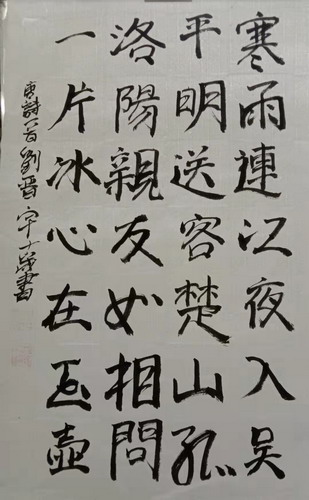 寒雨連江夜入吴
平明送客楚山孤
洛陽親友如相問
一片冰心在玉壺
唐詩一首劉晋
書